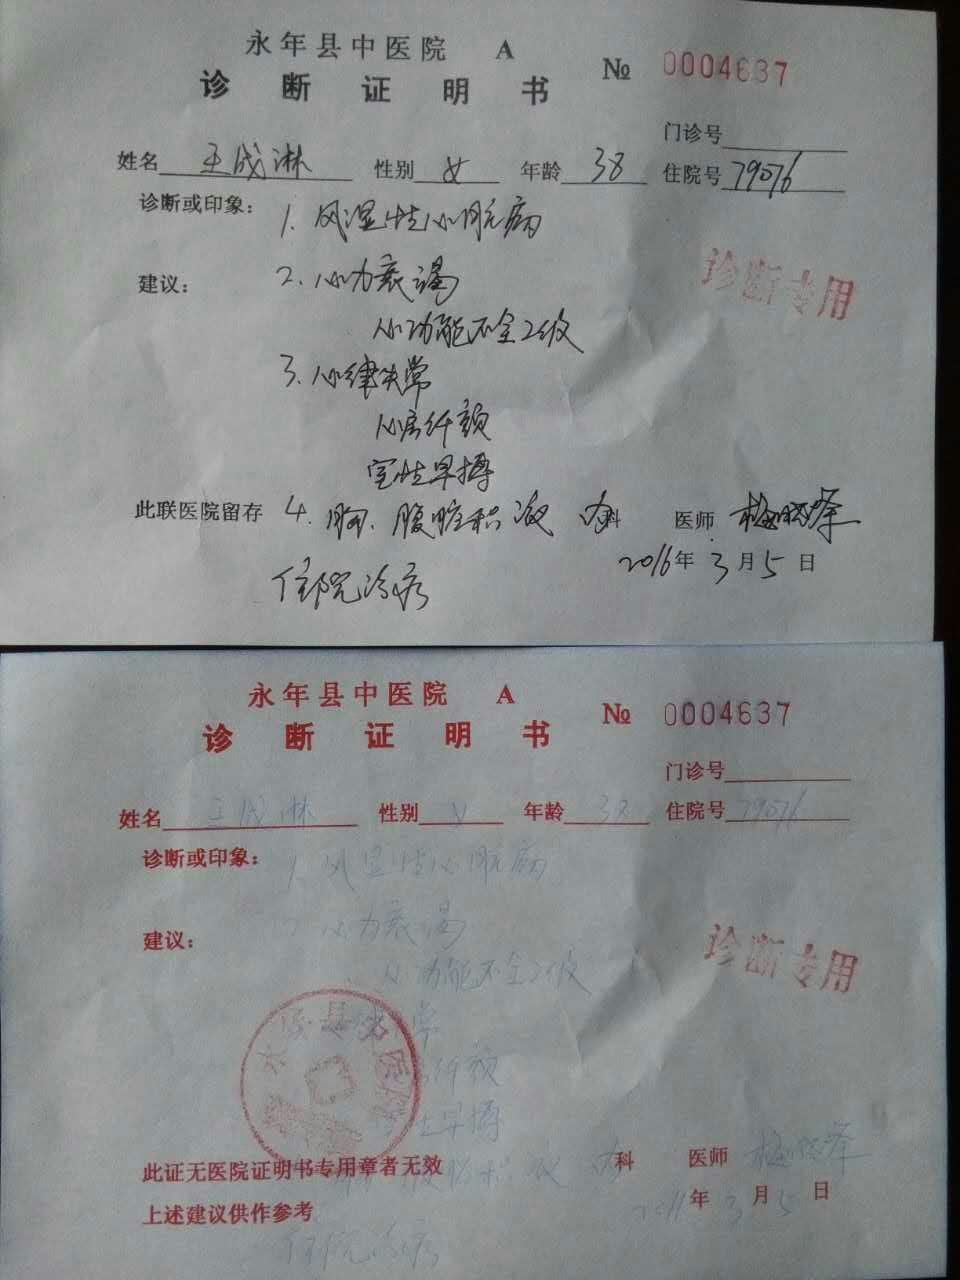 永年县中医院 A
诊断证明书
№ 0004637
门诊号
姓名 王成淋 性别 女 年龄 38 住院号 79076
诊断或印象：
1. 风湿性心脏病
建议：
2. 心力衰竭
心功能不全2级
3. 心律失常
心房纤颤
室性早搏
诊断专用
此联医院留存 4. 胸、腹腔积液 内科 医师
2016年3月5日
住院治疗
永年县中医院 A
诊断证明书
№ 0004637
门诊号
姓名 王成淋 性别 女 年龄 38 住院号 79076
诊断或印象：
1. 风湿性心脏病
建议：
心力衰竭
心功能不全2级
常
纤颤
性早搏
诊断专用
此证无医院证明书专用章者无效
腹腔积液 内科 医师
2016年3月5日
上述建议供作参考
住院治疗